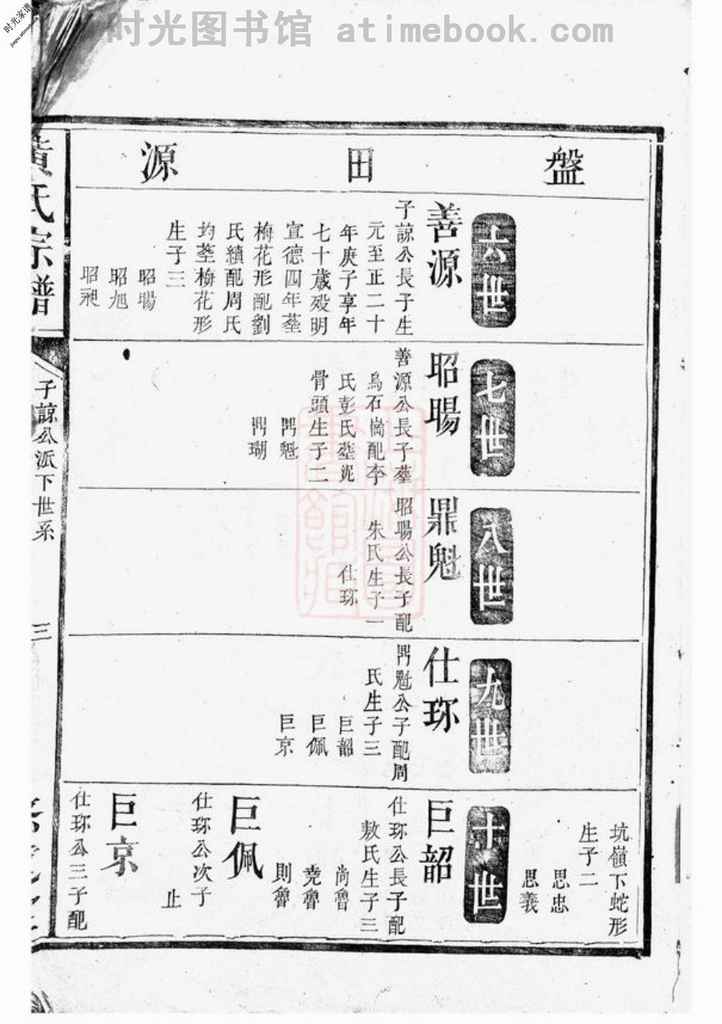 时光图书馆 atimebook.com
时光家谱
盤田源
六世
善源
子諒公長子生
元至正二十
年庚子享年
七十歲殁明
宣德四年塟
梅花形配劉
氏續配周氏
均塟梅花形
生子三
昭暘
昭旭
昭昶
七世
昭暘
善源公長子塟
烏石崗配李
氏彭氏塟泥
骨頭生子二
鼎魁
鼎瑚
八世
鼎魁
昭暘公長子配
朱氏生子一
仕珎
九世
仕珎
鼎魁公子配周
氏生子三
巨韶
巨佩
巨京
坑嶺下蛇形
生子二
思忠
思義
十世
巨韶
仕珎公長子配
敖氏生子三
尚魯
堯魯
則魯
巨佩
仕珎公次子
止
巨京
仕珎公三子配
黃氏宗譜
子諒公派下世系
三